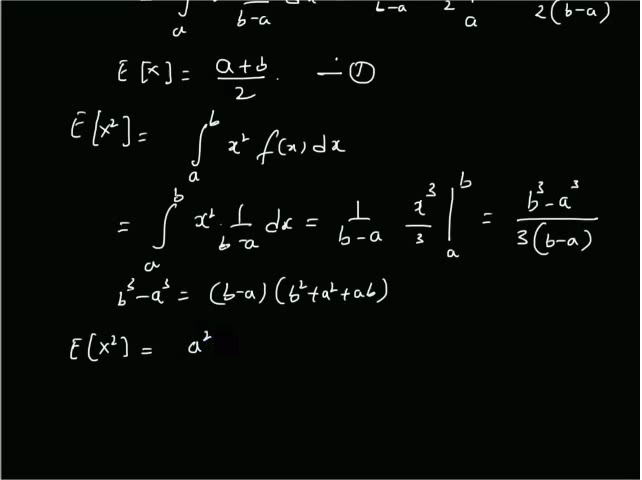 ∫ₐ b-a b-a 2 a 2(b-a)
E[x] = a+b/2 . — ①
E[x²] = ∫ₐᵇ x² f(x) dx
= ∫ₐᵇ x² · 1/b-a dx = 1/b-a x³/3 |ₐᵇ = b³-a³/3(b-a)
b³-a³ = (b-a)(b²+a²+ab)
E[x²] = a²